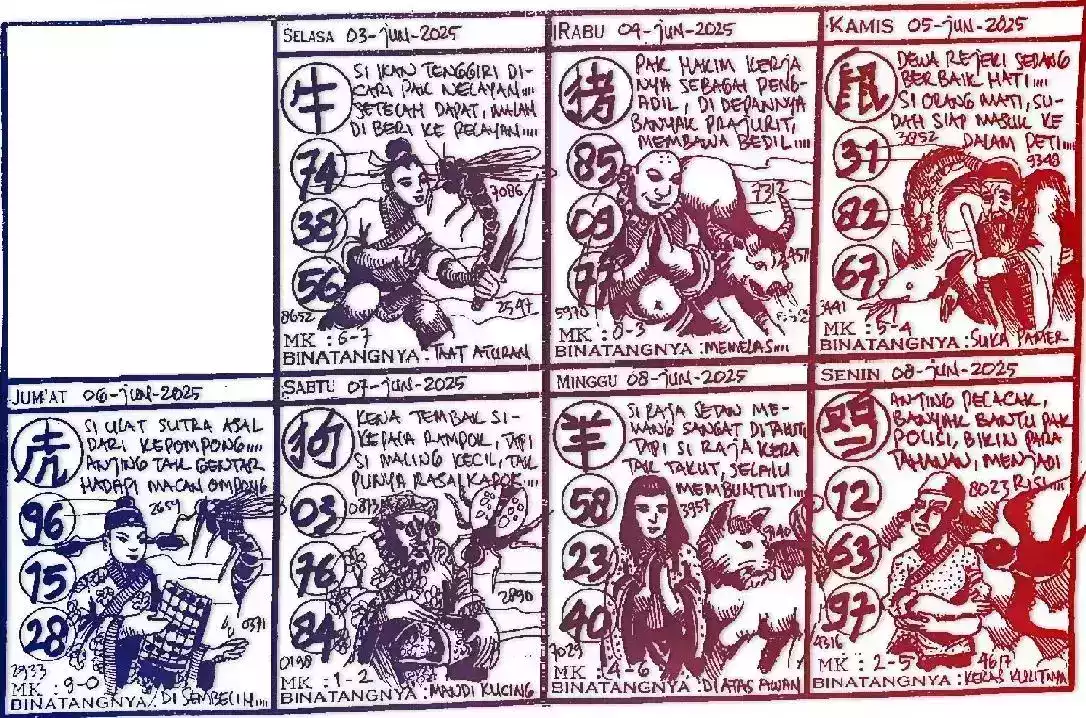 SELASA 03-JUN-2025
牛
SI IKAN TENGGIRI DI-
CARI PAK NELAYAN....
SETELAH DAPAT, MALAH
DI BERI KE PELAYAN....
74
38
56
7086
8652
2547
MK : 6-7
BINATANGNYA : TAAT ATURAN
RABU 04-JUN-2025
猪
PAK HAKIM KERJA
NYA SEBAGAI PENG-
ADIL, DI DEPANNYA
BANYAK PRAJURIT,
MEMBAWA BEDIL....
85
09
77
7312
5970
MK : 0-3
BINATANGNYA : MEMELAS....
KAMIS 05-JUN-2025
鼠
DEWA REJEKI SEDANG
BERBAIK HATI....
SI ORANG MATI, SU-
DAH SIAP MASUK KE
DALAM PETI....
31
82
67
3852
9348
3441
MK : 5-4
BINATANGNYA : SUKA PAMER
JUM'AT 06-JUN-2025
虎
SI ULAT SUTRA ASAL
DARI KEPOMPONG....
ANJING TAK GENTAR
HADAPI MACAN OMPONG
96
15
28
2659
0371
2933
MK : 9-0
BINATANGNYA : DI SEMBELIH....
SABTU 07-JUN-2025
狗
KENA TEMBAK SI-
KEPALA RAMPOK, TAPI
SI MALING KECIL, TAK
PUNYA RASA KAPOK....
03
76
84
2890
0198
MK : 1-2
BINATANGNYA : MANDI KUCING
MINGGU 08-JUN-2025
羊
SI RAJA SETAN ME-
MANG SANGAT DI TAKUTI
TAPI SI RAJA KERA
TAK TAKUT, SELALU
MEMBUNTUTI....
58
23
40
3957
7029
MK : 4-6
BINATANGNYA : DI ATAS AWAN
SENIN 09-JUN-2025
鸡
ANJING PELACAK,
BANYAK BANTU PAK
POLISI, BIKIN PARA
TAHANAN, MENJADI
RISI....
12
63
97
8023
4316
4617
MK : 2-5
BINATANGNYA : KERAS KULITNYA